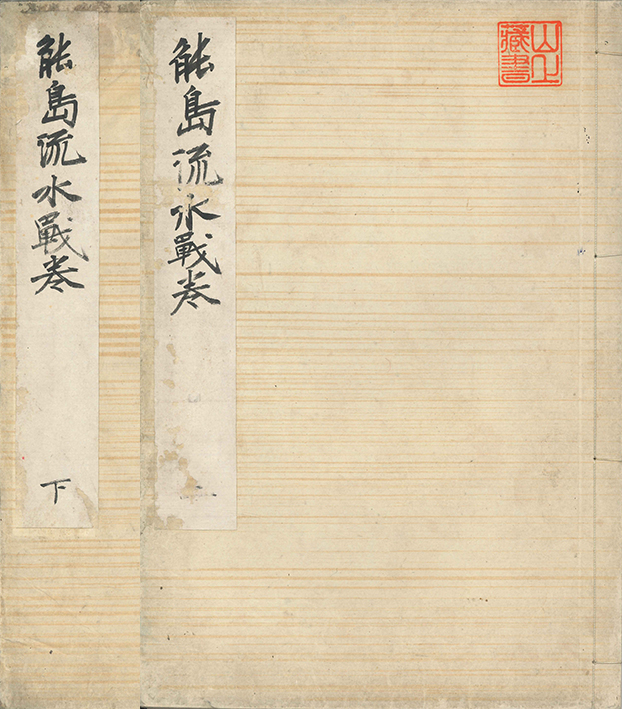 山
藏書
能島流水戰卷
能島流水戰卷
下